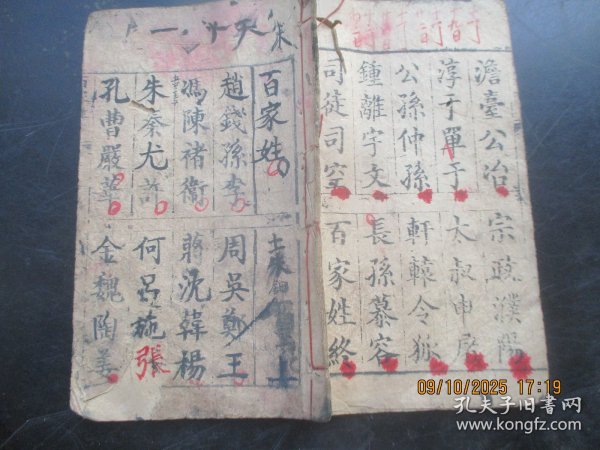 百家姓
趙錢孫李 周吳鄭王
馮陳褚衛 蔣沈韓楊
朱秦尤許 何呂施張
孔曹嚴華 金魏陶姜
澹臺公冶 宗政濮陽
淳于單于 太叔申屠
公孫仲孫 軒轅令狐
鍾離宇文 長孫慕容
司徒司空 百家姓終
09/10/2025 17:19
孔夫子旧书网
www.kongfz.com